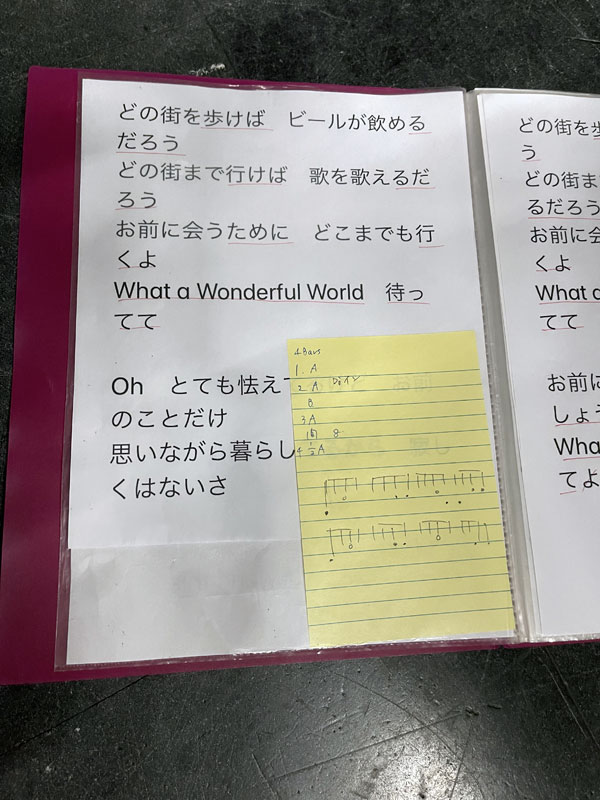 どの街を歩けば　ビールが飲める
だろう
どの街まで行けば　歌を歌えるだ
ろう
お前に会うために　どこまでも行
くよ
What a Wonderful World　待っ
てて
Oh　とても怯えて　お前
のことだけ
思いながら暮らし　から　寂し
くはないさ
4 Bars
1. A
2 A
8
3 A
間 8
4 1/2 A
どの街を歩
う
どの街ま
るだろう
お前に会
くよ
What a
てて
お前に
しょう
Wha
てよ